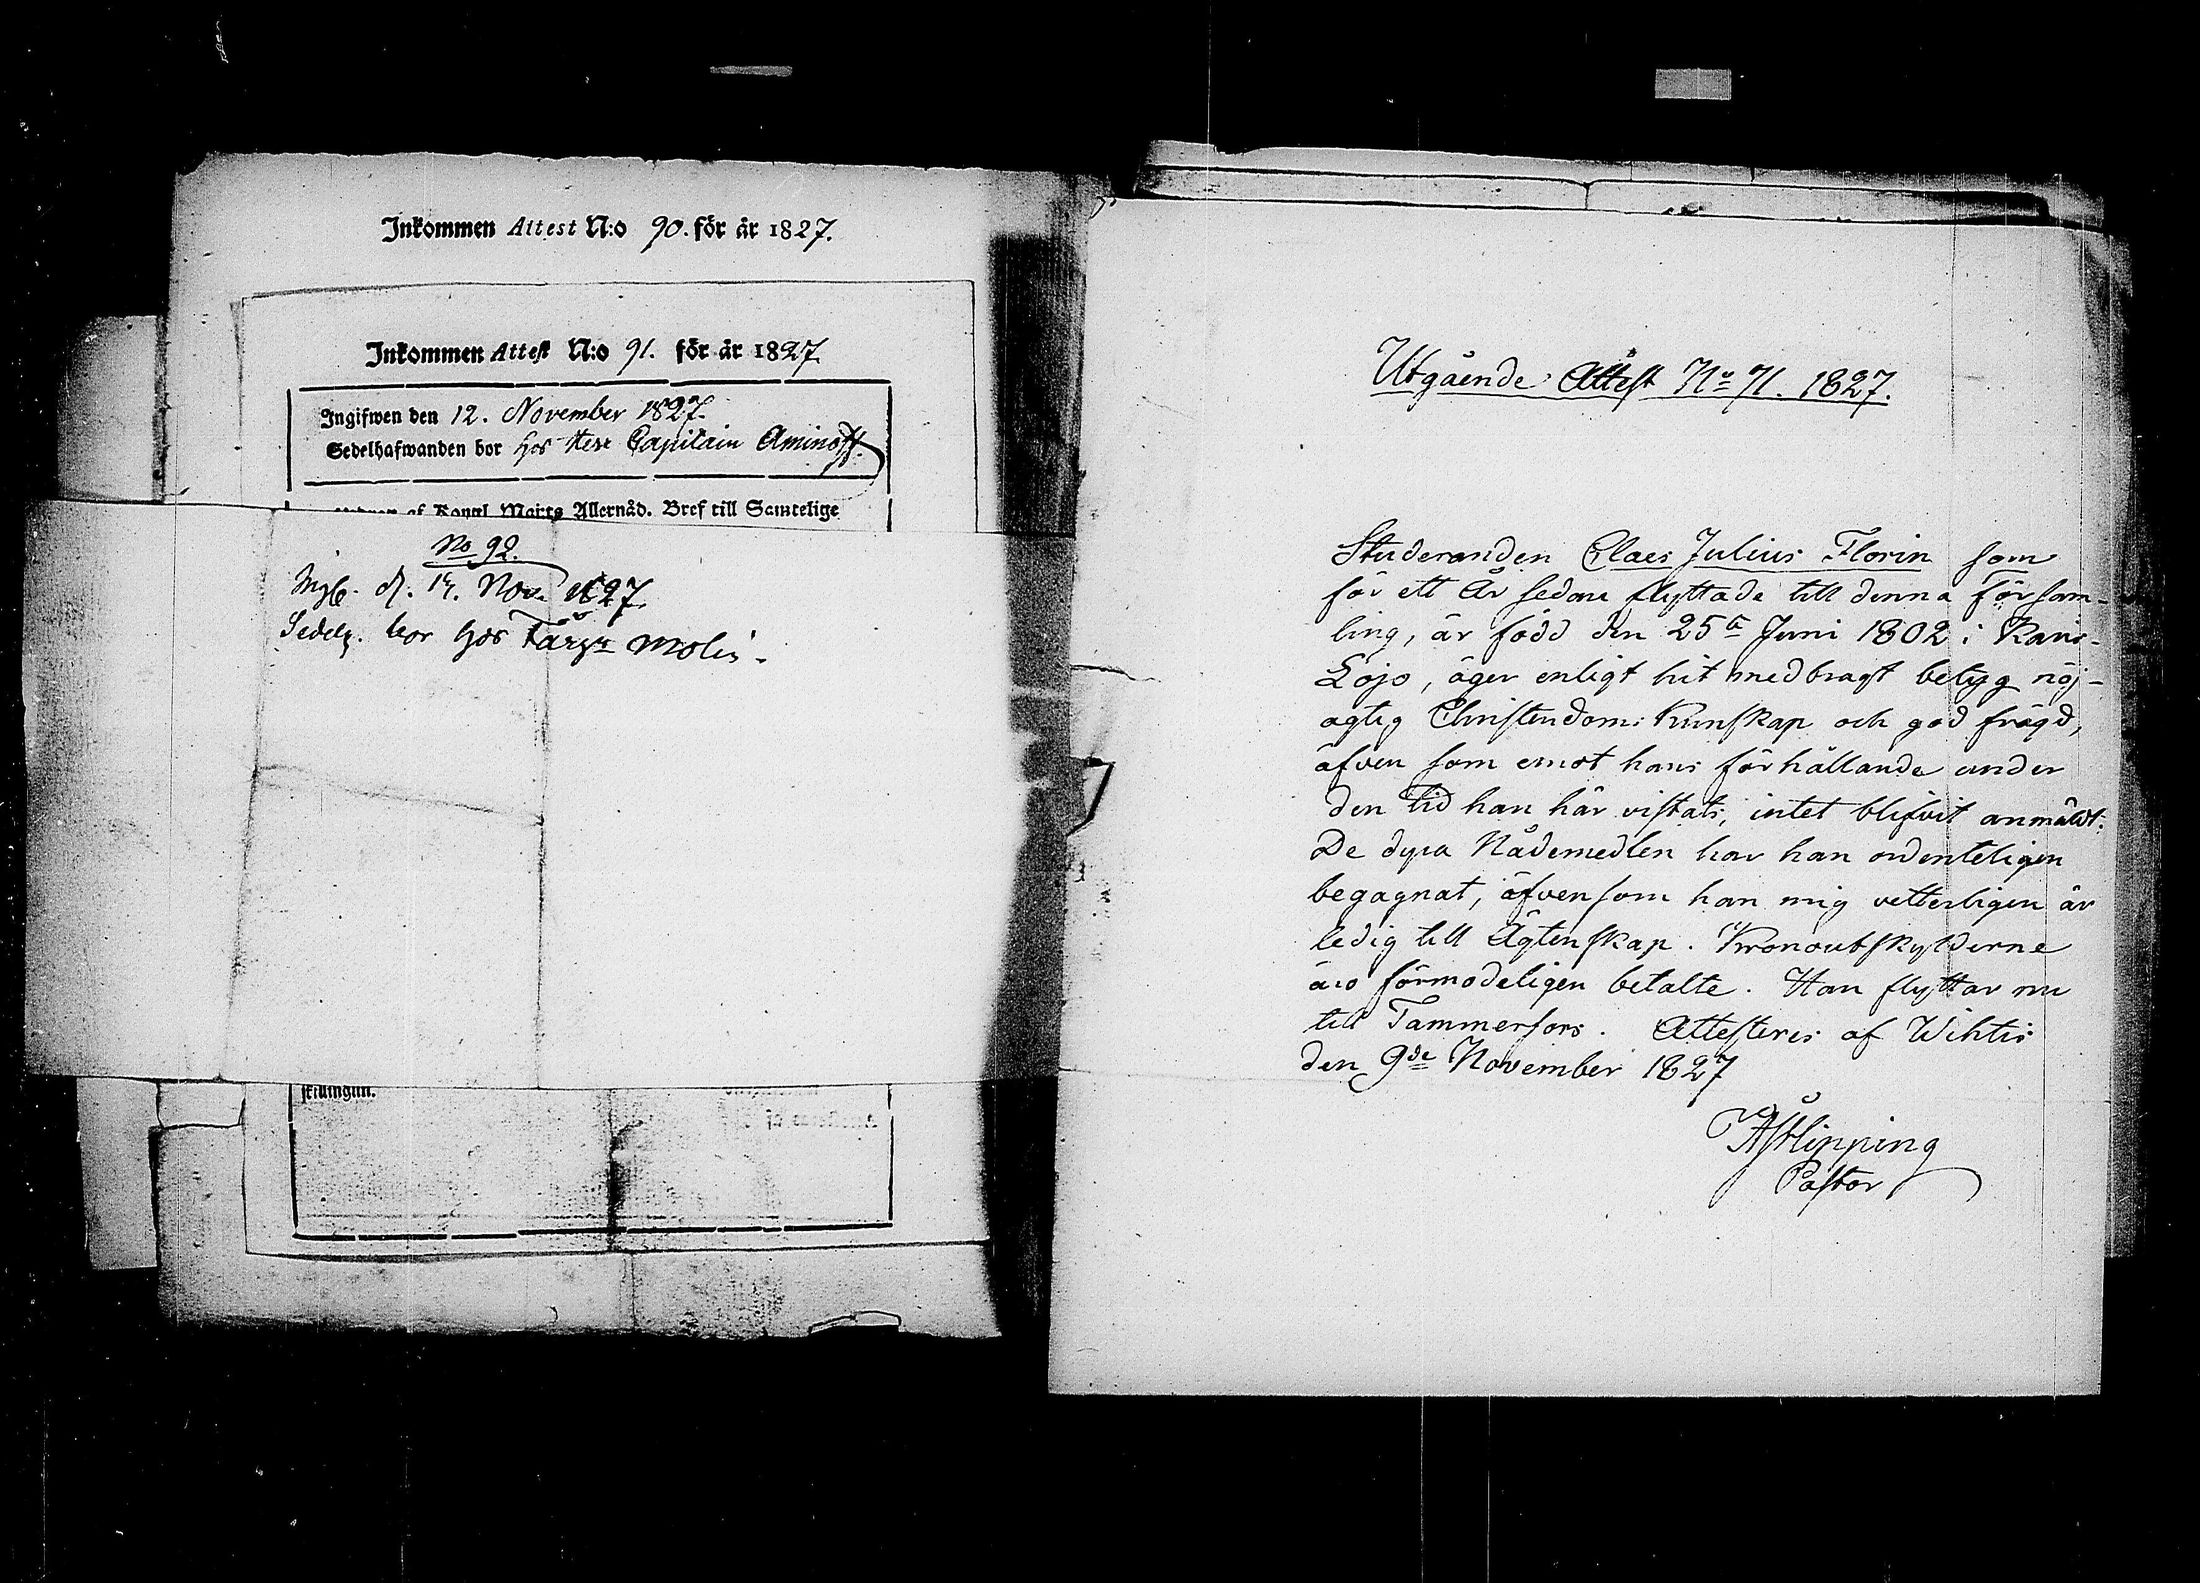 Inkommen Attest N:o 90. för år 1827.
Inkommen Attest N:o 91. för år 1827
Ingifwen den 12. November 1827.
Sedelhafwanden bor hos Herr Capitain Aminoff.
af Kongl. Maj:ts Allernåd. Bref till Samtelige
No 92.
d. Nov. 1827.
bor hos Färg:n Molin.
skillingar.
Utgående Attest No 71. 1827.
Studeranden Claes Julius Florin som
för ett År sedan flyttade till denna försam-
ling, är född den 25te Juni 1802 i Karis-
Lojo, äger enligt hit medbragt betyg nöj-
agtig Christendoms Kunskap och god frägd,
äfven som emot hans förhållande under
den tid han här vistats, intet blifvit anmält:
De dyra Nådemedlen har han ordenteligen
begagnat, äfvensom han mig vetterligen är
ledig till Ägtenskap. Kronoutskylderne
äro förmodeligen betalte. Han flyttar nu
till Tammerfors. Attesteres af Wihtis
den 9de November 1827
Hipping
Pastor